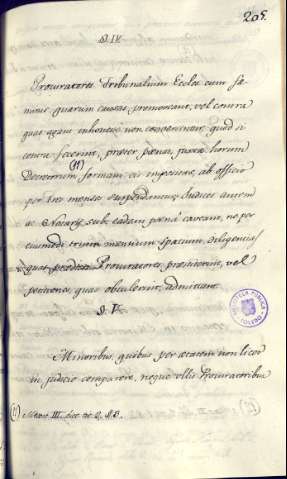 205.
§. IV.
Procuratores Tribunalium Eccles cum fæ
minis quarum causas promoveant, vel contra
quas agant inhoneste non conversentur, quod si
contra fecerint, præter pœnas juxta horum
Decretorum formam eis imponendas, ab officio
per tres menses suspendantur, Judices autem
ac Notarij sub eadem pœna caveant, ne per
eiusmodi trium mensium spatium, diligencias
quas prædicti Procuratores præstiterint, vel
petitiones, quas obtulerint, admittant.
§. V.
Minoribus, quibus per ætatem non licet
in judicio comparere, neque ullis Procuratoribus
BIBLIOTECA PUBLICA
TOLEDO